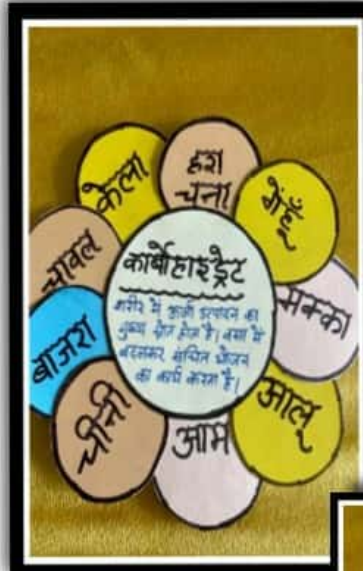 कार्बोहाइड्रेट
शरीर में ऊर्जा उत्पादन का
मुख्य स्रोत होता है। वसा में
बदलकर संचित भोजन
का कार्य करता है।
केला
हरा
चना
गेहूँ
मक्का
आलू
आम
चीनी
बाजरा
चावल